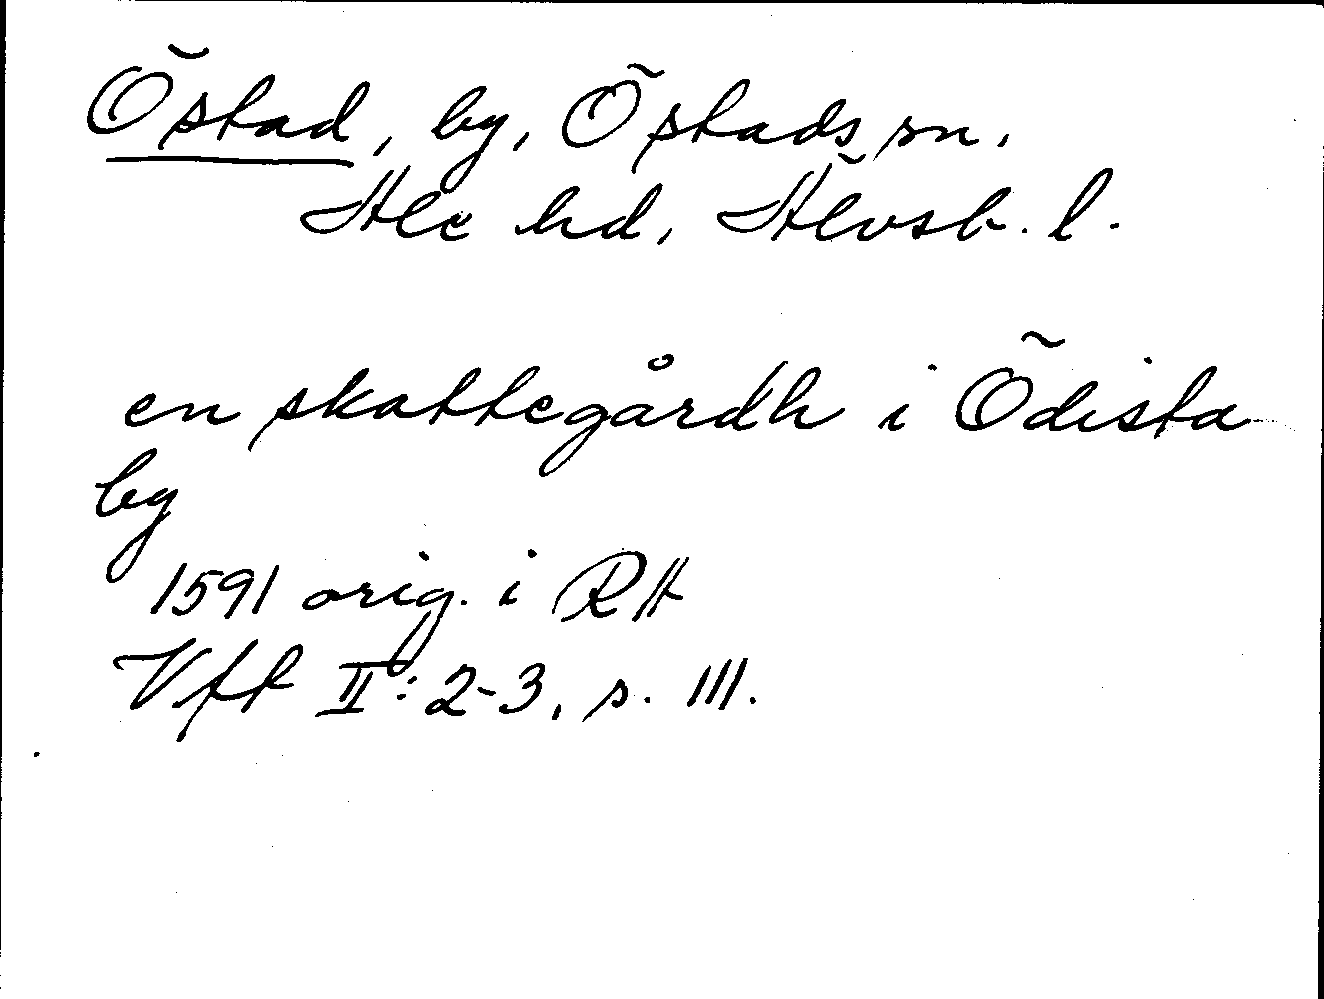 Östad, by, Östads sn.
Ale hd, Älvsb. l.
en skattegårdh i Ödista
by
1591 orig. i RA
Vft II: 2-3, s. 111.